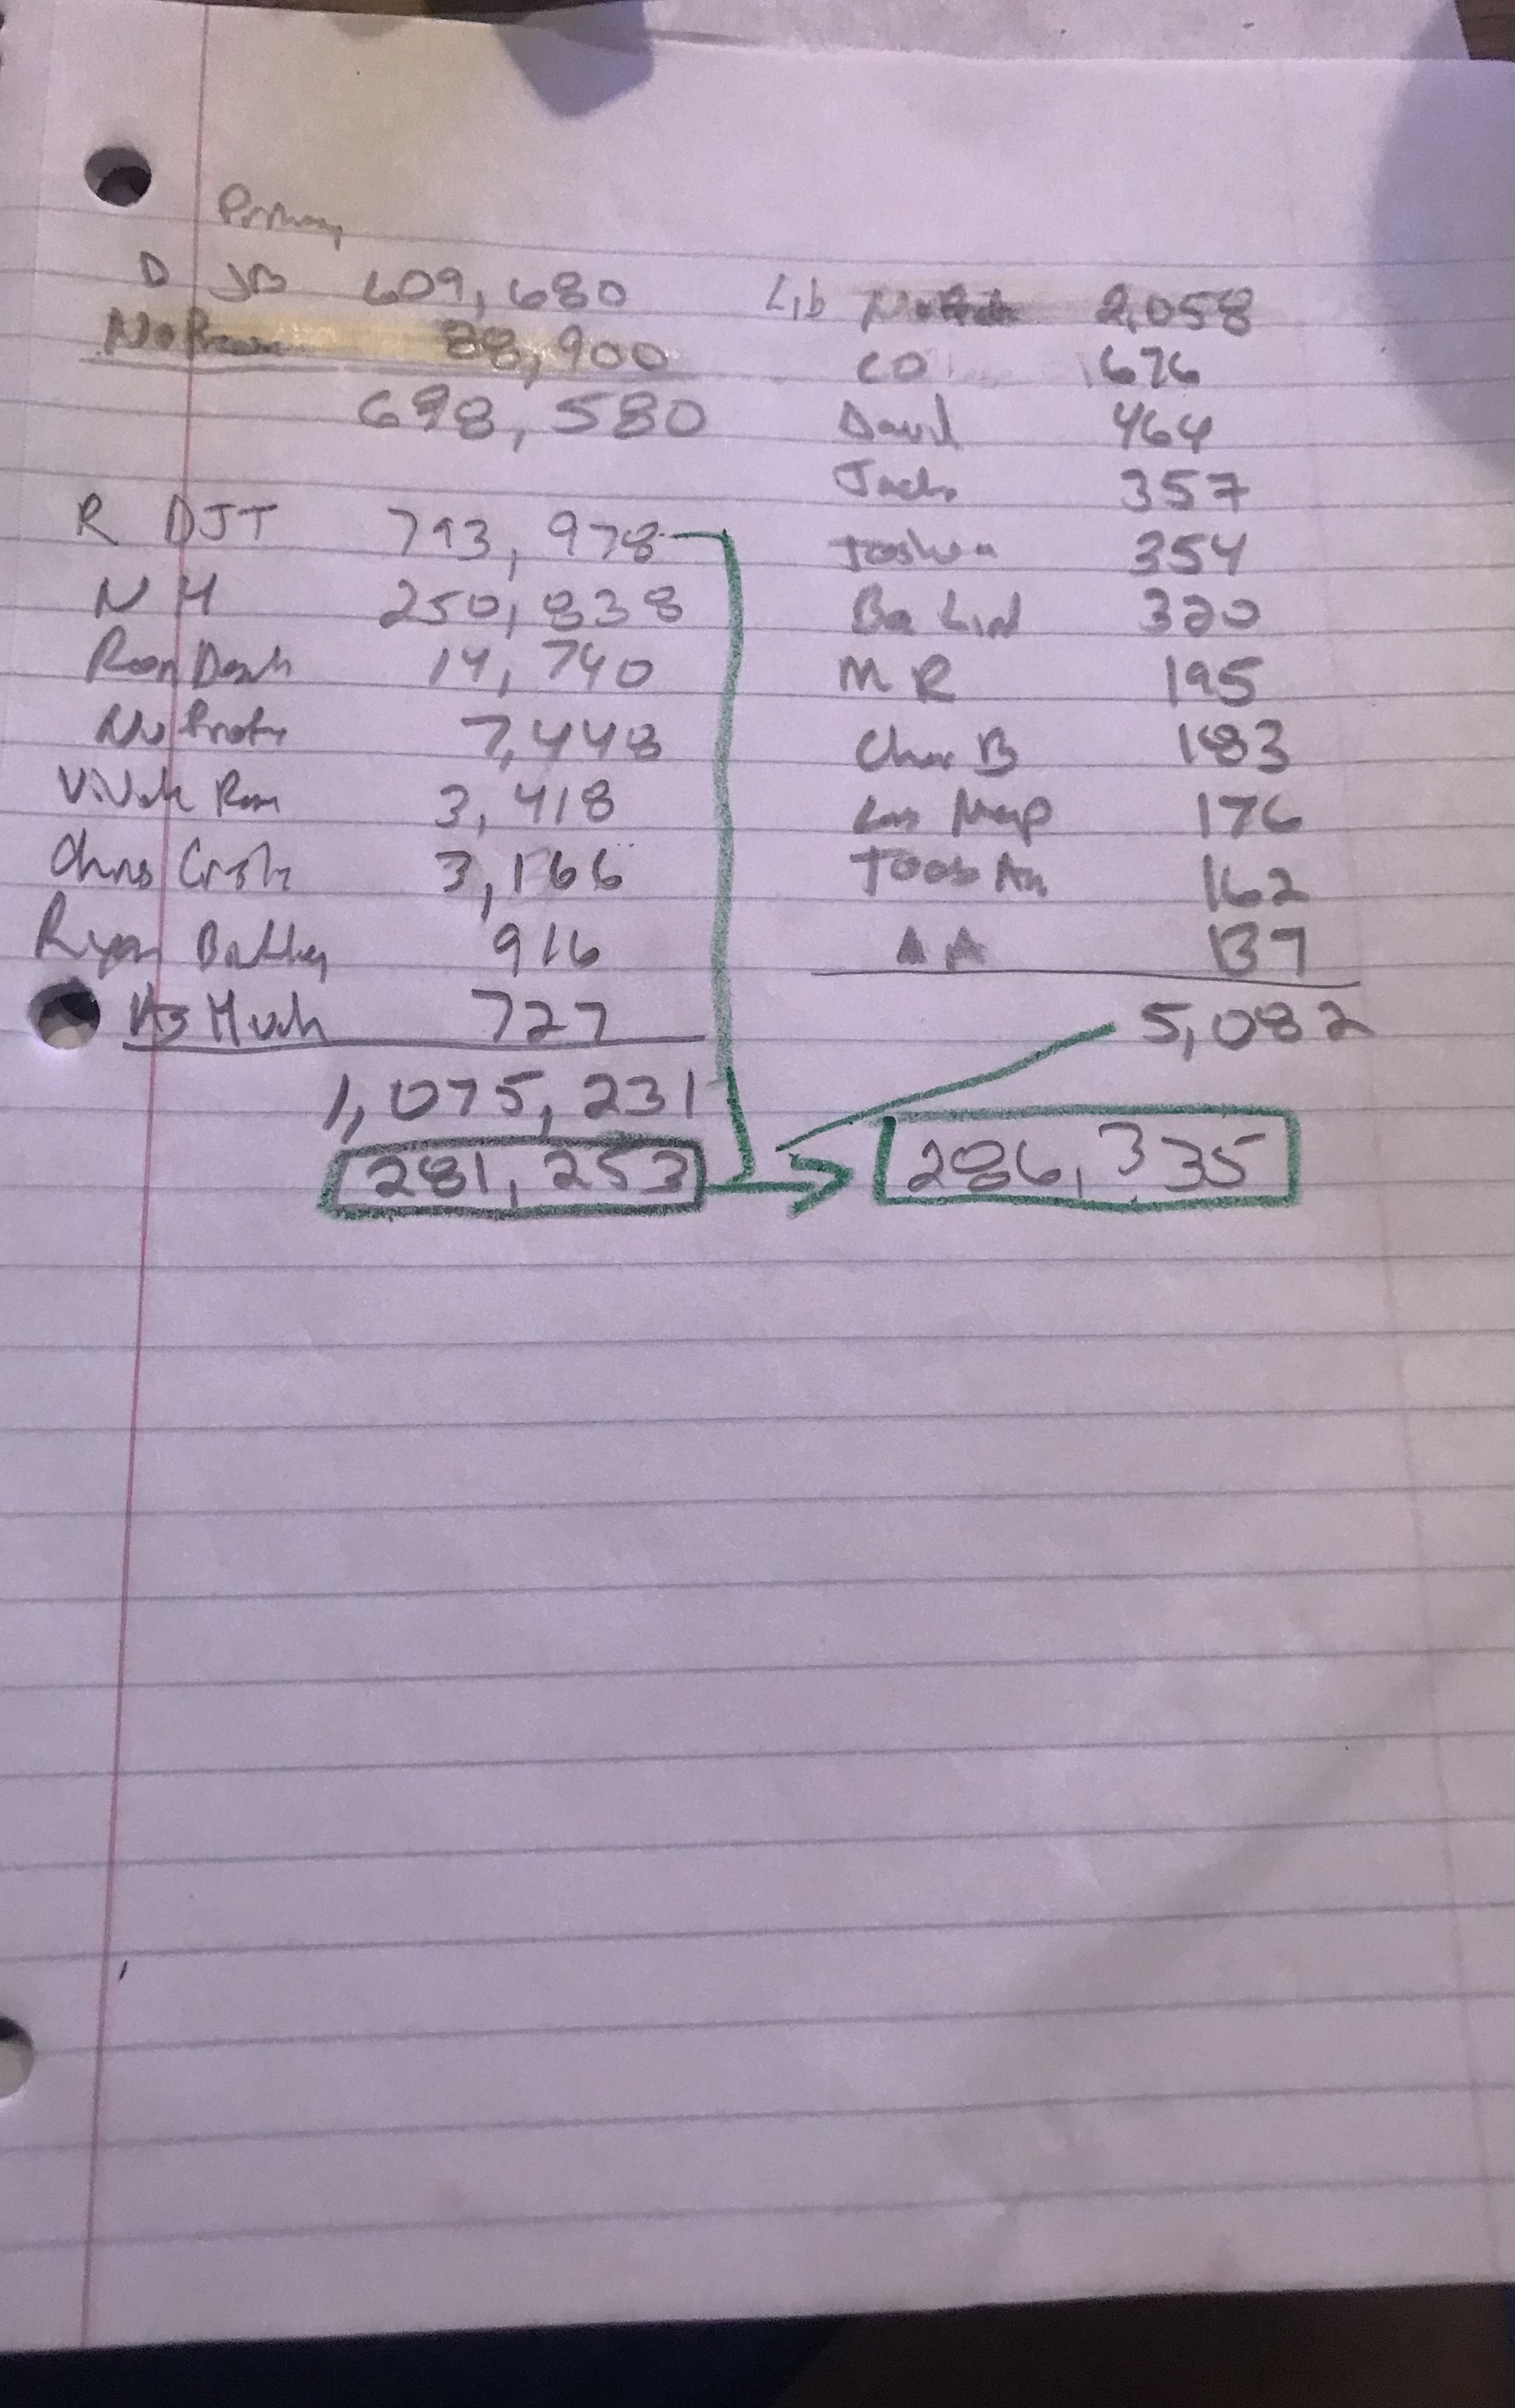 Primary
D JB 609,680
No Pre 88,900
698,580
R DJT 793,978
N H 250,838
Ron Desh 14,740
No Prefer 7,448
Vivek Ram 3,418
Chris 3,166
Ryan 916
727
1,075,231
281,253
Lib 2,058
CO 676
David 464
Jacob 357
Joshua 354
Ba Lind 320
M R 195
Char B 183
Lars Map 176
162
A A 137
5,082
286,335